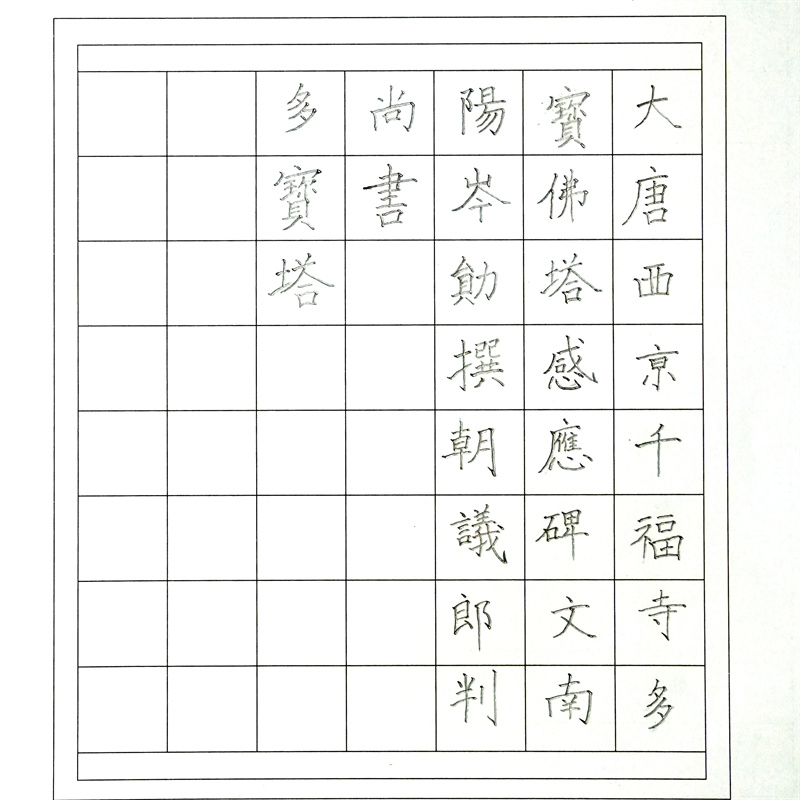 大唐西京千福寺多
寳佛塔感應碑文南
陽岑勛撰朝議郎判
尚書
多寳塔